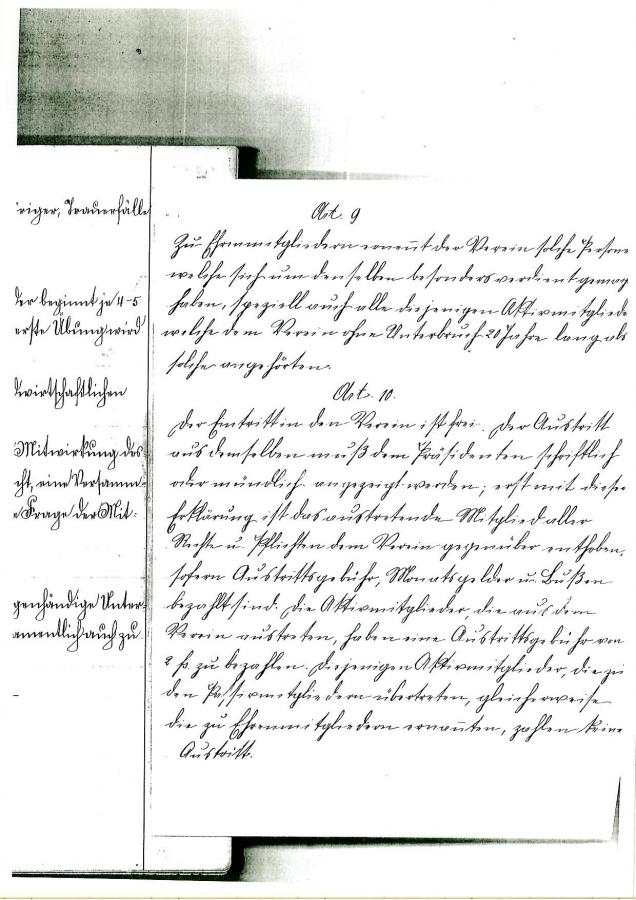 riger, Trauerfälle
der beginnt je 4-5
erste Übung wird
dwirtschaftlichen
Mitwirkung des
cht, eine Versamml-
e Frage der Mit-
genhändige Unter-
amentlich auch zu
Art. 9
Zu Ehrenmitgliedern ernennt der Verein solche Persone
welche sich um denselben besonders verdient gemac
haben, speziell auch alle diejenigen Aktivmitgliede
welche dem Verein ohne Unterbruch 20 Jahre lang als
solche angehörten.
Art. 10.
Der Eintritt in den Verein ist frei. Der Austritt
aus demselben muß dem Präsidenten schriftlich
oder mündlich angezeigt werden; erst mit dieser
Erklärung ist das austretende Mitglied aller
Rechte u. Pflichten dem Verein gegenüber enthoben,
sofern Austrittsgebühr, Monatsgelder u. Bußen
bezahlt sind. Die Aktivmitglieder, die aus dem
Verein austreten, haben eine Austrittsgebühr von
2 fr. zu bezahlen. Diejenigen Aktivmitglieder, die zu
den Passivmitgliedern übertreten, gleicherweise
die zu Ehrenmitgliedern ernannten, zahlen keine
Austritt.